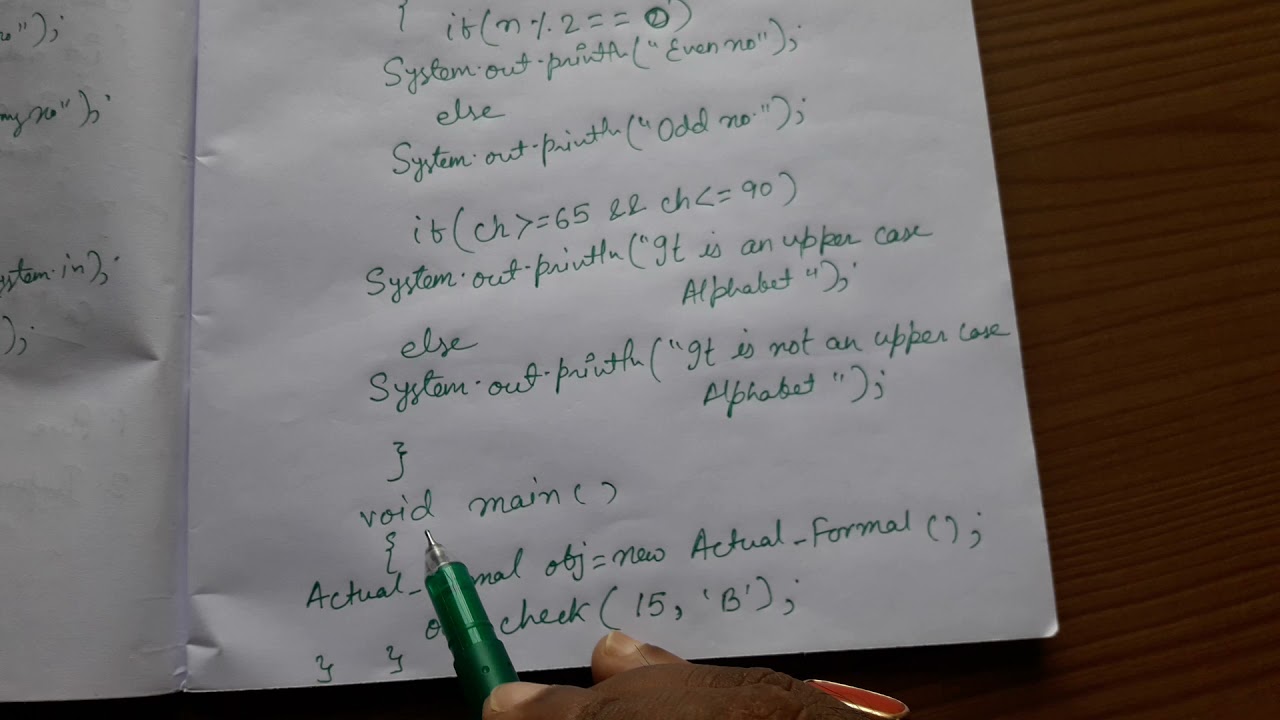 no");
my no");
ystem.in);
);
{ if(n % 2 == 0)
System.out.println("Even no");
else
System.out.println("Odd no.");
if(ch>=65 && ch<=90)
System.out.println("It is an upper case
Alphabet");
else
System.out.println("It is not an upper case
Alphabet");
}
void main()
{
Actual_ mal obj=new Actual_Formal();
check(15, 'B');
} }